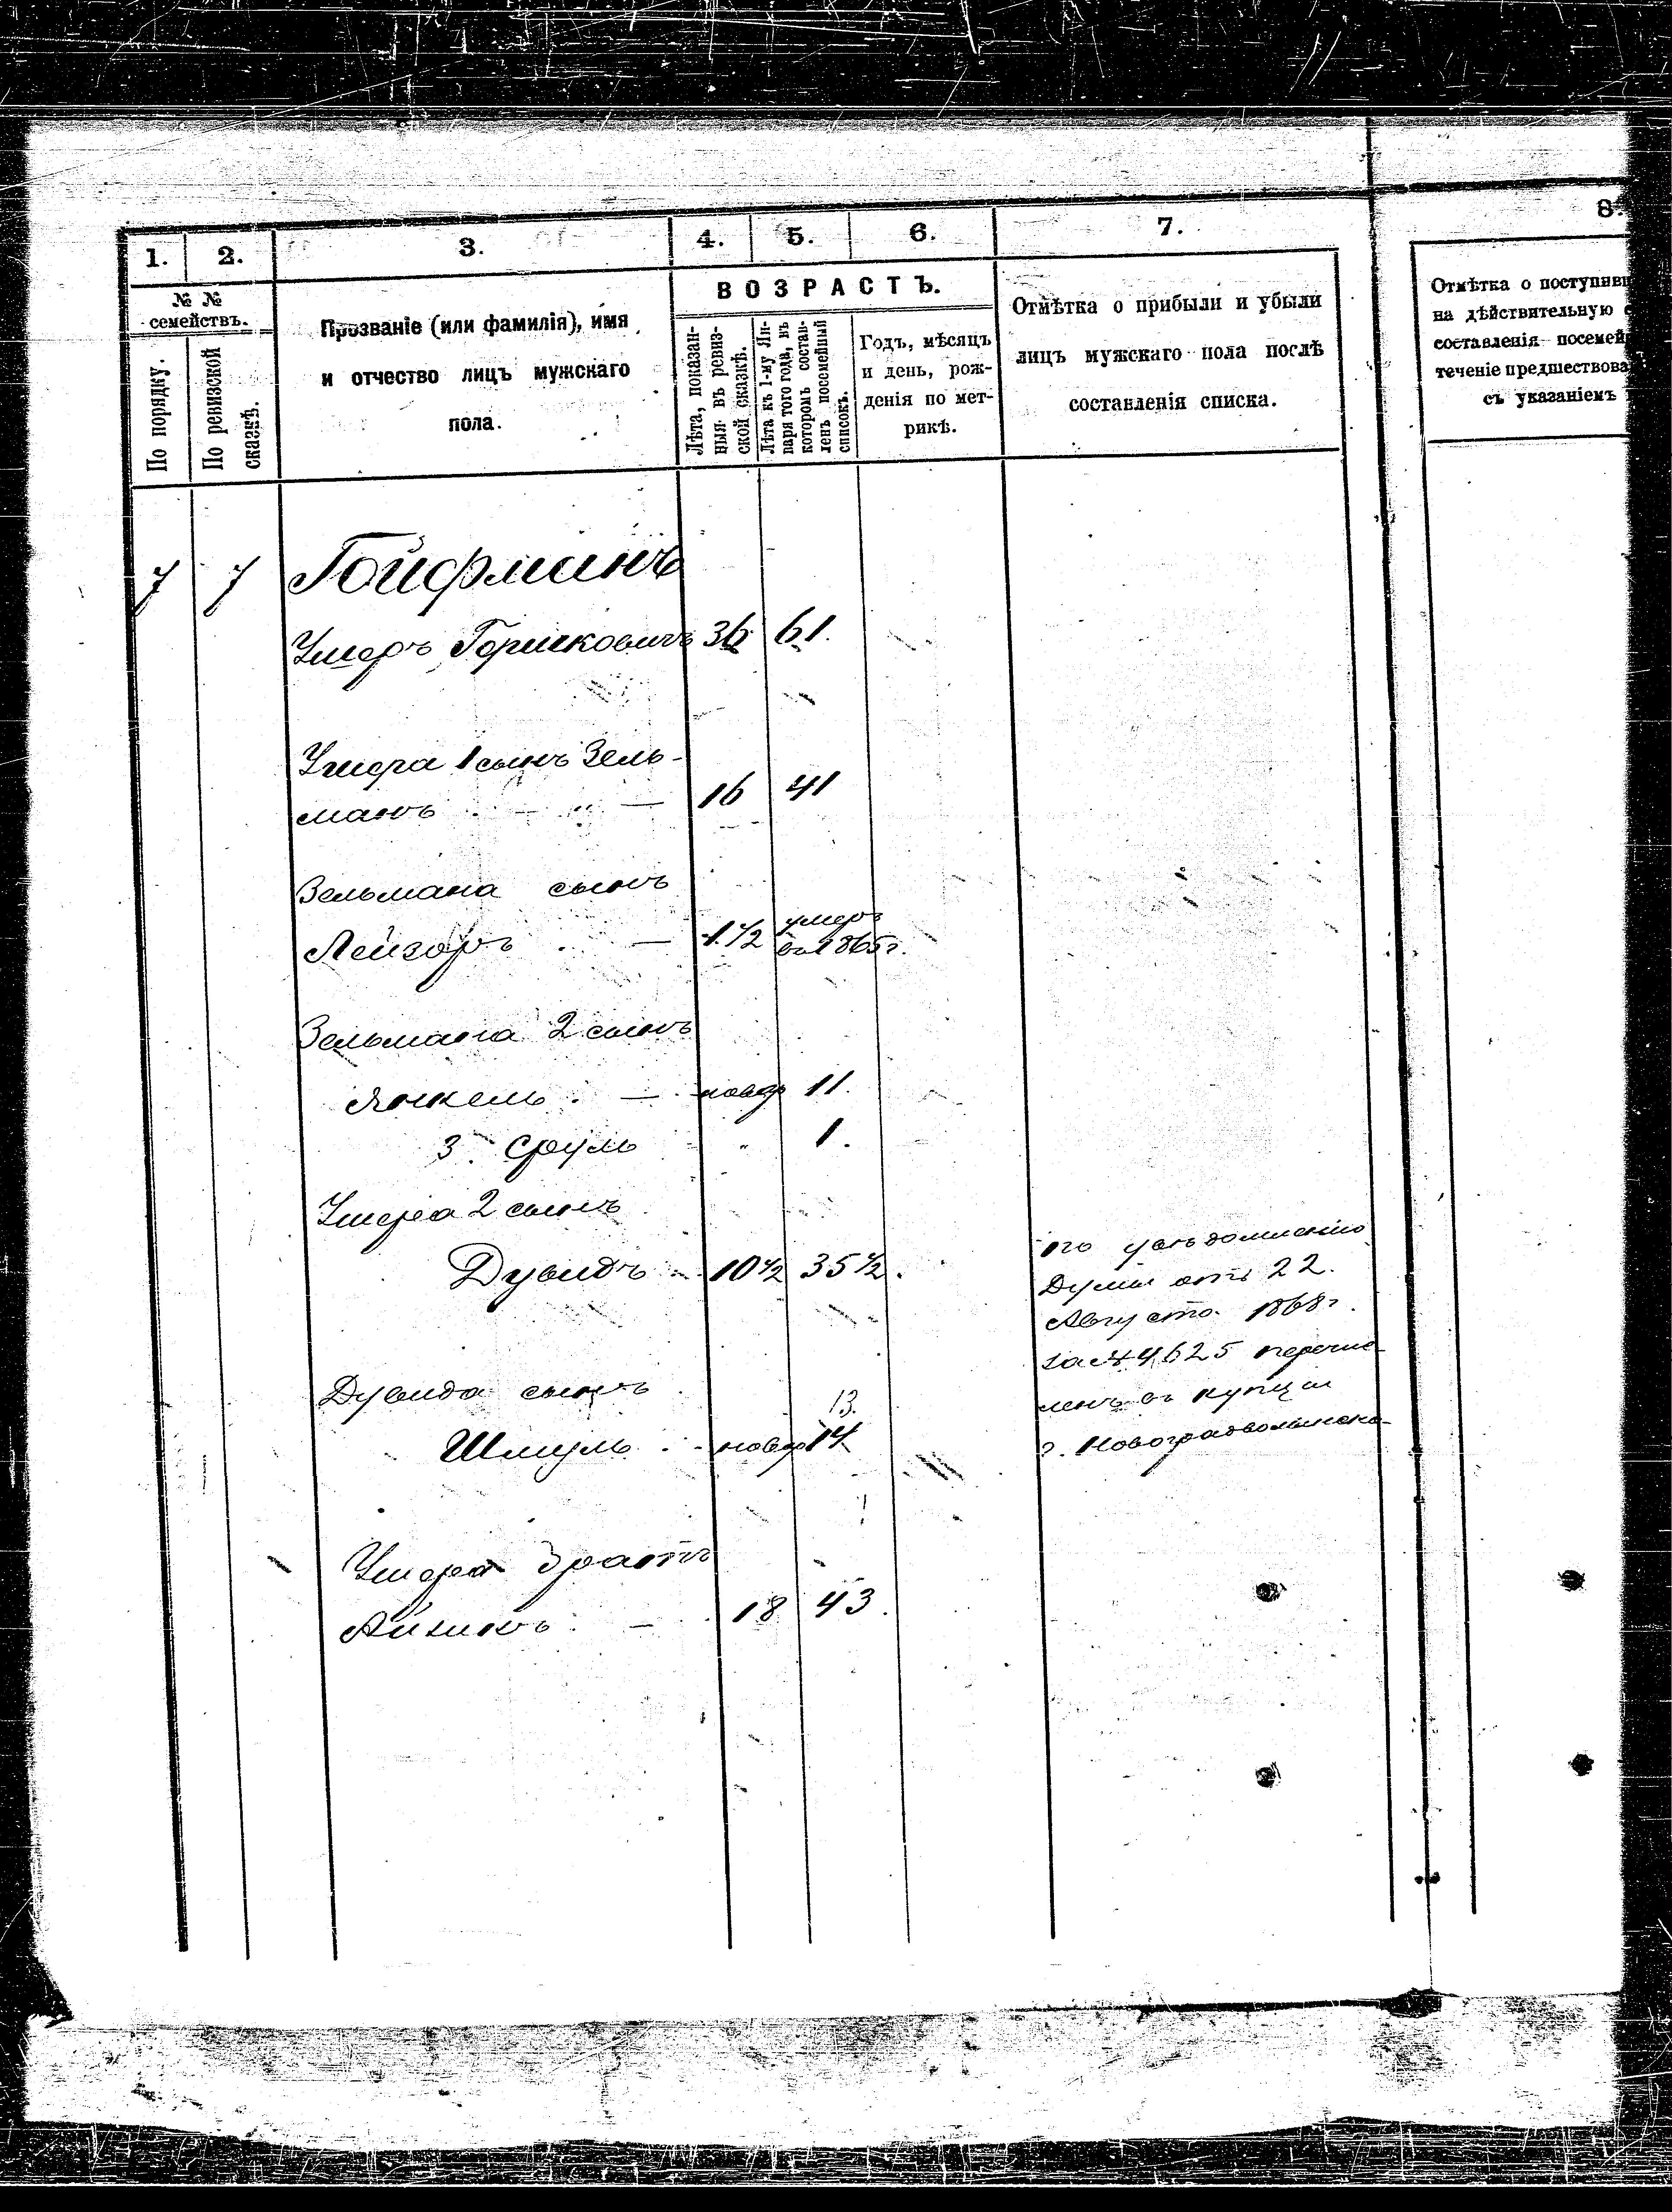 1. 2. 3. 4. 5. 6. 7. 8.
№ №
семействъ.
По порядку.
По ревизской
сказкѣ.
Прозваніе (или фамилія), имя
и отчество лицъ мужскаго
пола.
ВОЗРАСТЪ.
Лѣта, показан-
ныя въ ревиз-
ской сказкѣ.
Лѣта къ 1-му Ян-
варя того года, въ
которомъ состав-
ленъ посемейный
списокъ.
Годъ, мѣсяцъ
и день, рож-
денія по мет-
рикѣ.
Отмѣтка о прибыли и убыли
лицъ мужскаго пола послѣ
составленія списка.
Отмѣтка о поступивш
на дѣйствительную с
составленія посемей
теченіе предшествова
съ указаніемъ
7 7 Гойфманъ
Ушеръ Гершковичъ 36 61.
Ушера 1 сынъ Зель-
манъ 16 41
Зельмана сынъ
Лейзоръ 1 1/2 умеръ
въ 1865 г.
Зельмана 2 сынъ
Янкель новор 11.
3. Сруль " 1.
Ушера 2 сынъ
Дувидъ 10 1/2 35 1/2.
по увѣдомленію
Думы отъ 22.
Августа 1868 г.
за № 4625 перечис-
ленъ въ купцы
г. Новоградволынска
Дувида сынъ 13.
Шмуль новор 14
Ушера братъ
Айзикъ 18 43.